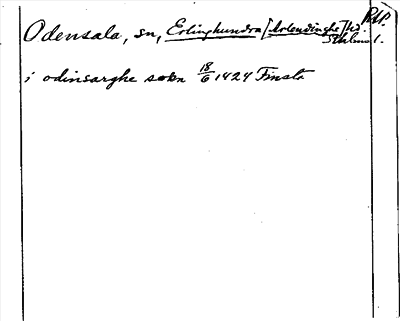 RAP.
Odensala, sn, Erlinghundra [Arlendinghe] hd.
Sthlms l.
i odinsarghe sokn 18/6 1424 Finsta